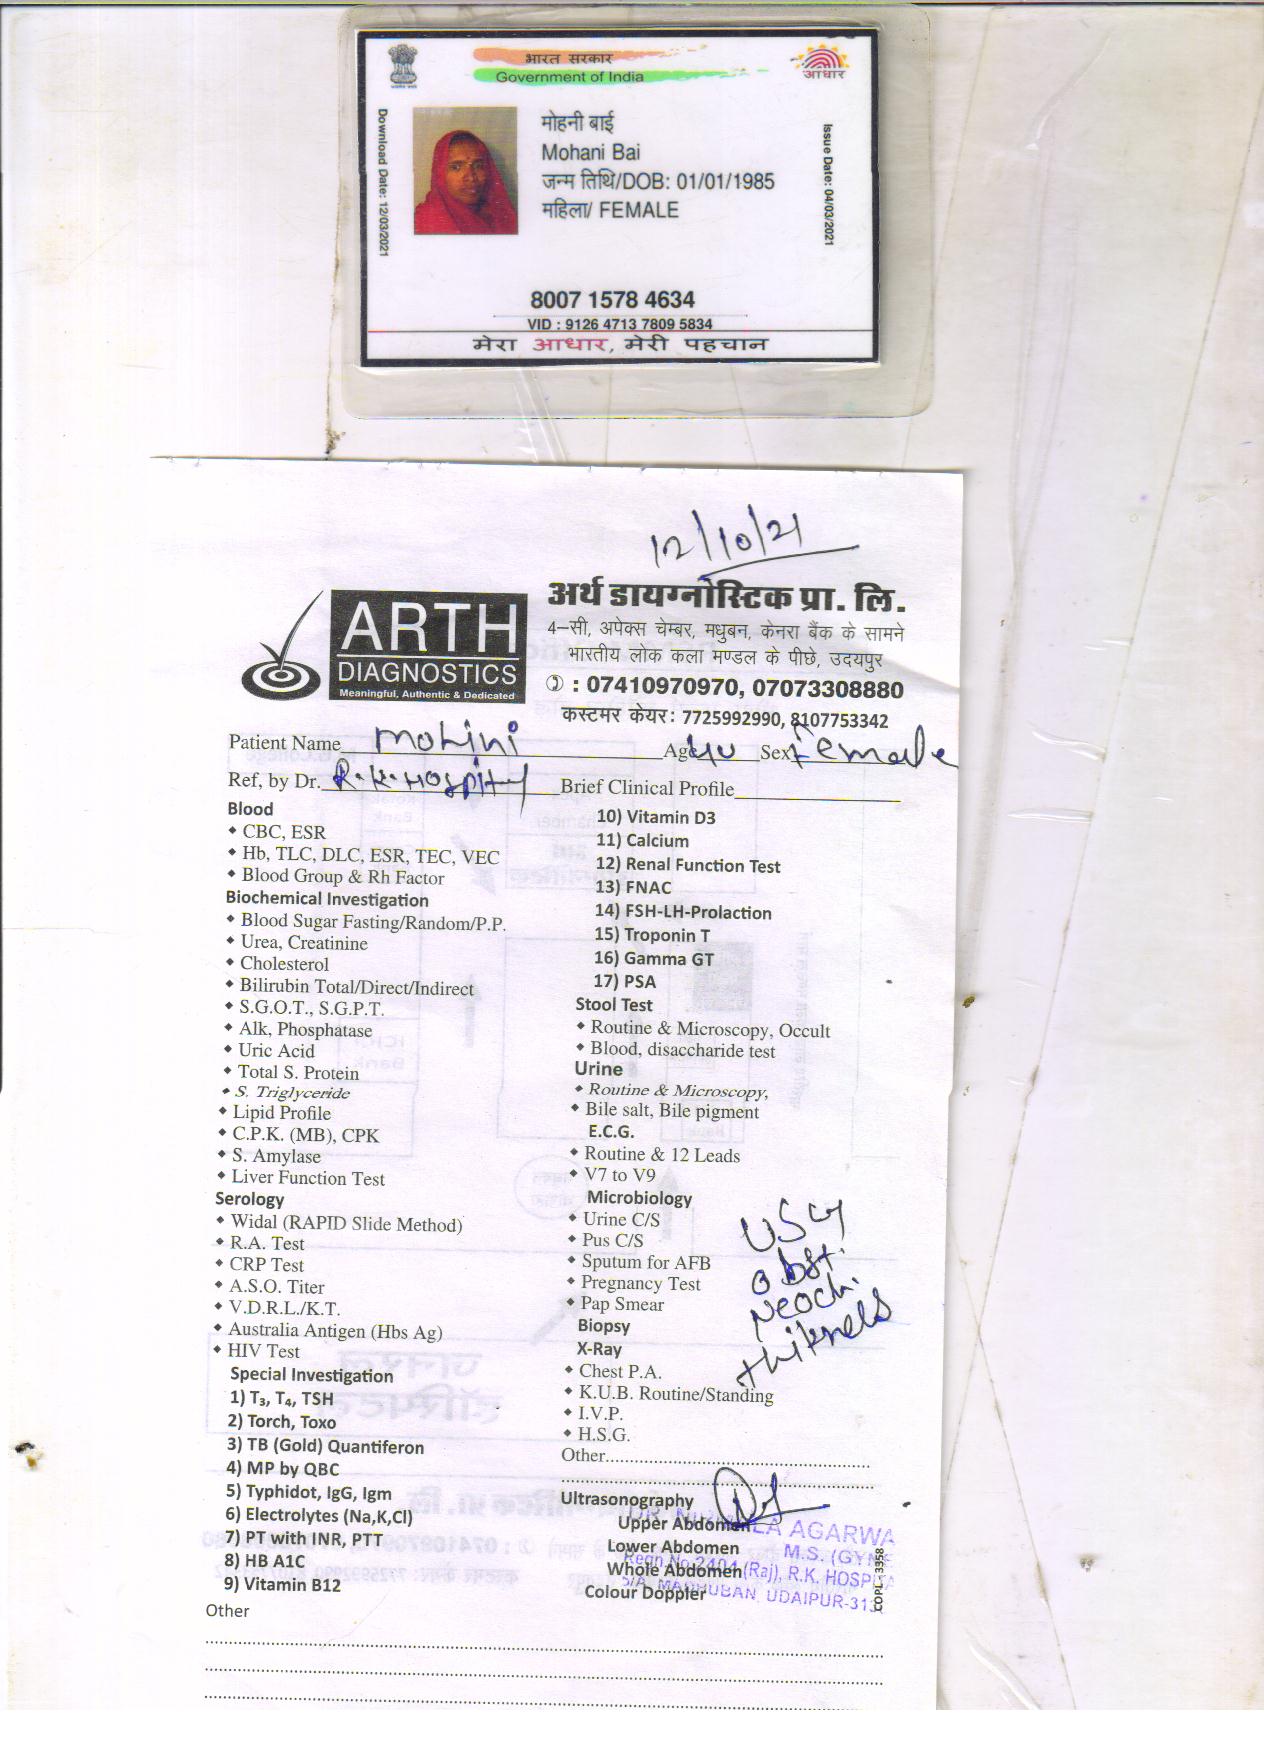 भारत सरकार
Government of India
आधार
Download Date: 12/03/2021
मोहनी बाई
Mohani Bai
जन्म तिथि/DOB: 01/01/1985
महिला/ FEMALE
Issue Date: 04/03/2021
8007 1578 4634
VID : 9126 4713 7809 5834
मेरा आधार, मेरी पहचान
12/10/21
ARTH
DIAGNOSTICS
Meaningful, Authentic & Dedicated
अर्थ डायग्नोस्टिक प्रा. लि.
4-सी, अपेक्स चेम्बर, मधुबन, केनरा बैंक के सामने
भारतीय लोक कला मण्डल के पीछे, उदयपुर
: 07410970970, 07073308880
कस्टमर केयर: 7725992990, 8107753342
Patient Name Mohini Age 40 Sex Female
Ref, by Dr. R.K. Hospital Brief Clinical Profile
Blood
CBC, ESR
Hb, TLC, DLC, ESR, TEC, VEC
Blood Group & Rh Factor
Biochemical Investigation
Blood Sugar Fasting/Random/P.P.
Urea, Creatinine
Cholesterol
Bilirubin Total/Direct/Indirect
S.G.O.T., S.G.P.T.
Alk, Phosphatase
Uric Acid
Total S. Protein
S. Triglyceride
Lipid Profile
C.P.K. (MB), CPK
S. Amylase
Liver Function Test
Serology
Widal (RAPID Slide Method)
R.A. Test
CRP Test
A.S.O. Titer
V.D.R.L./K.T.
Australia Antigen (Hbs Ag)
HIV Test
Special Investigation
1) T₃, T₄, TSH
2) Torch, Toxo
3) TB (Gold) Quantiferon
4) MP by QBC
5) Typhidot, IgG, Igm
6) Electrolytes (Na,K,Cl)
7) PT with INR, PTT
8) HB A1C
9) Vitamin B12
Other
10) Vitamin D3
11) Calcium
12) Renal Function Test
13) FNAC
14) FSH-LH-Prolaction
15) Troponin T
16) Gamma GT
17) PSA
Stool Test
Routine & Microscopy, Occult
Blood, disaccharide test
Urine
Routine & Microscopy,
Bile salt, Bile pigment
E.C.G.
Routine & 12 Leads
V7 to V9
Microbiology
Urine C/S
Pus C/S
Sputum for AFB
Pregnancy Test
Pap Smear
Biopsy
X-Ray
Chest P.A.
K.U.B. Routine/Standing
I.V.P.
H.S.G.
Other
USG
obst.
thiknels
Ultrasonography
Upper Abdomen
Lower Abdomen
Whole Abdomen
Colour Doppler
AGARWA
M.S. (GYN
Regn.No.2404 (Raj), R.K. HOSPI
MADHUBAN, UDAIPUR-313
COPL-3358